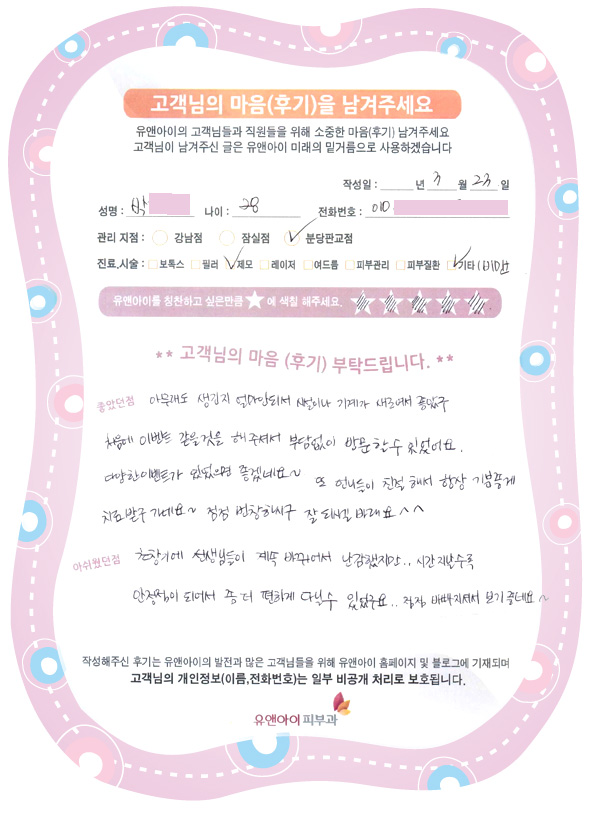 고객님의 마음(후기)을 남겨주세요
유앤아이의 고객님들과 직원들을 위해 소중한 마음(후기) 남겨주세요
고객님이 남겨주신 글은 유앤아이 미래의 밑거름으로 사용하겠습니다
작성일 : 년 3 월 23 일
성명 : 박 나이 : 28 전화번호 : 010
관리 지점 : 강남점 잠실점 분당판교점
진료,시술 : 보톡스 필러 제모 레이저 여드름 피부관리 피부질환 기타 (비만
유앤아이를 칭찬하고 싶은만큼 ★ 에 색칠 해주세요.
** 고객님의 마음 (후기) 부탁드립니다. **
좋았던점 아무래도 생긴지 얼마안되서 시설이나 기계가 새거에서 좋았구
처음에 이벤트 같은것을 해주셔서 부담없이 방문할수 있었어요.
다양한이벤트가 있었으면 좋겠네요~ 또 언니들이 친절해서 항상 기분좋게
치료받구 가네요~ 점점 번창하시구 잘 되시길 바래요^^
아쉬웠던점 초창기에 선생님들이 계속 바뀌어서 난감했지만.. 시간지날수록
안정적이 되어서 좀 더 편하게 다닐수 있었구요.. 점점 바빠지셔서 보기좋네요~
작성해주신 후기는 유앤아이의 발전과 많은 고객님들을 위해 유앤아이 홈페이지 및 블로그에 기재되며
고객님의 개인정보(이름,전화번호)는 일부 비공개 처리로 보호됩니다.
유앤아이피부과